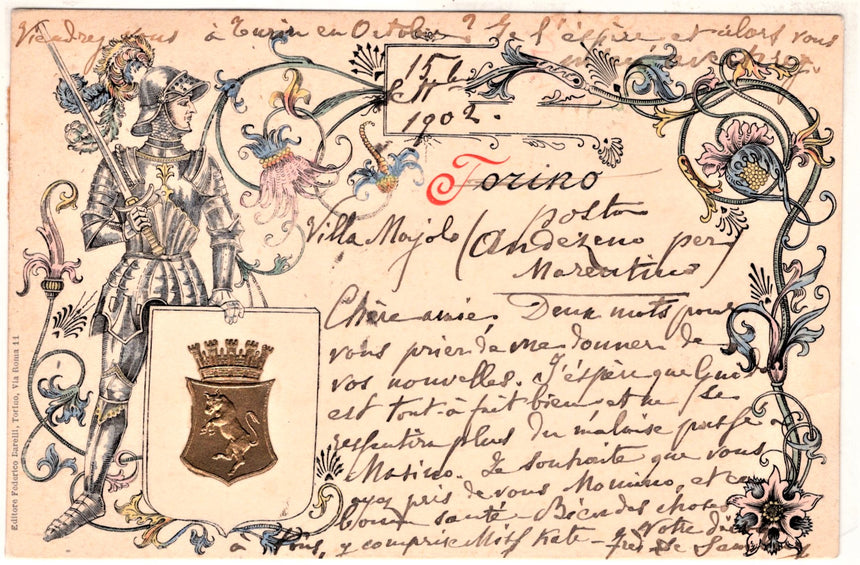 Viendrez vous à Turin en Octobre? Je l'espère et alors vous
15
7tt
1902.
Torino
Villa Majolo (Andezeno per
posta
Marentino
Chère amie. Deux mots pour
vous prier de me donner de
vos nouvelles. J'espère que
est tout-à-fait bien et ne se
ressentira plus du malaise
Masino. Je souhaite que vous
ayez près de vous Momino, et en
bonne santé. Bien des choses
à Vous, y compris Miss Kate - Votre
Editore Federico Earelli, Torino, Via Roma 11